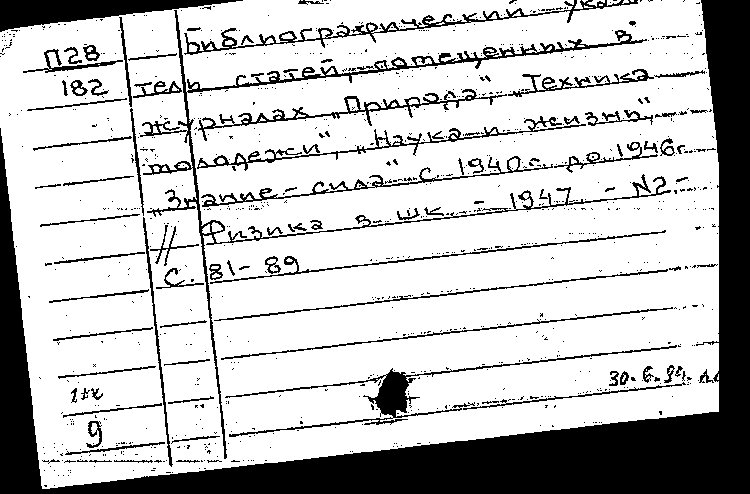 П28
182
Библиографический указа
тель статей, помещенных в
журналах „Природа", „Техника
молодежи", „Наука и жизнь",
„Знание - сила" с 1940г. до 1946г.
// Физика в шк. - 1947. - N2. -
С. 81-89.
9
30.6.94.